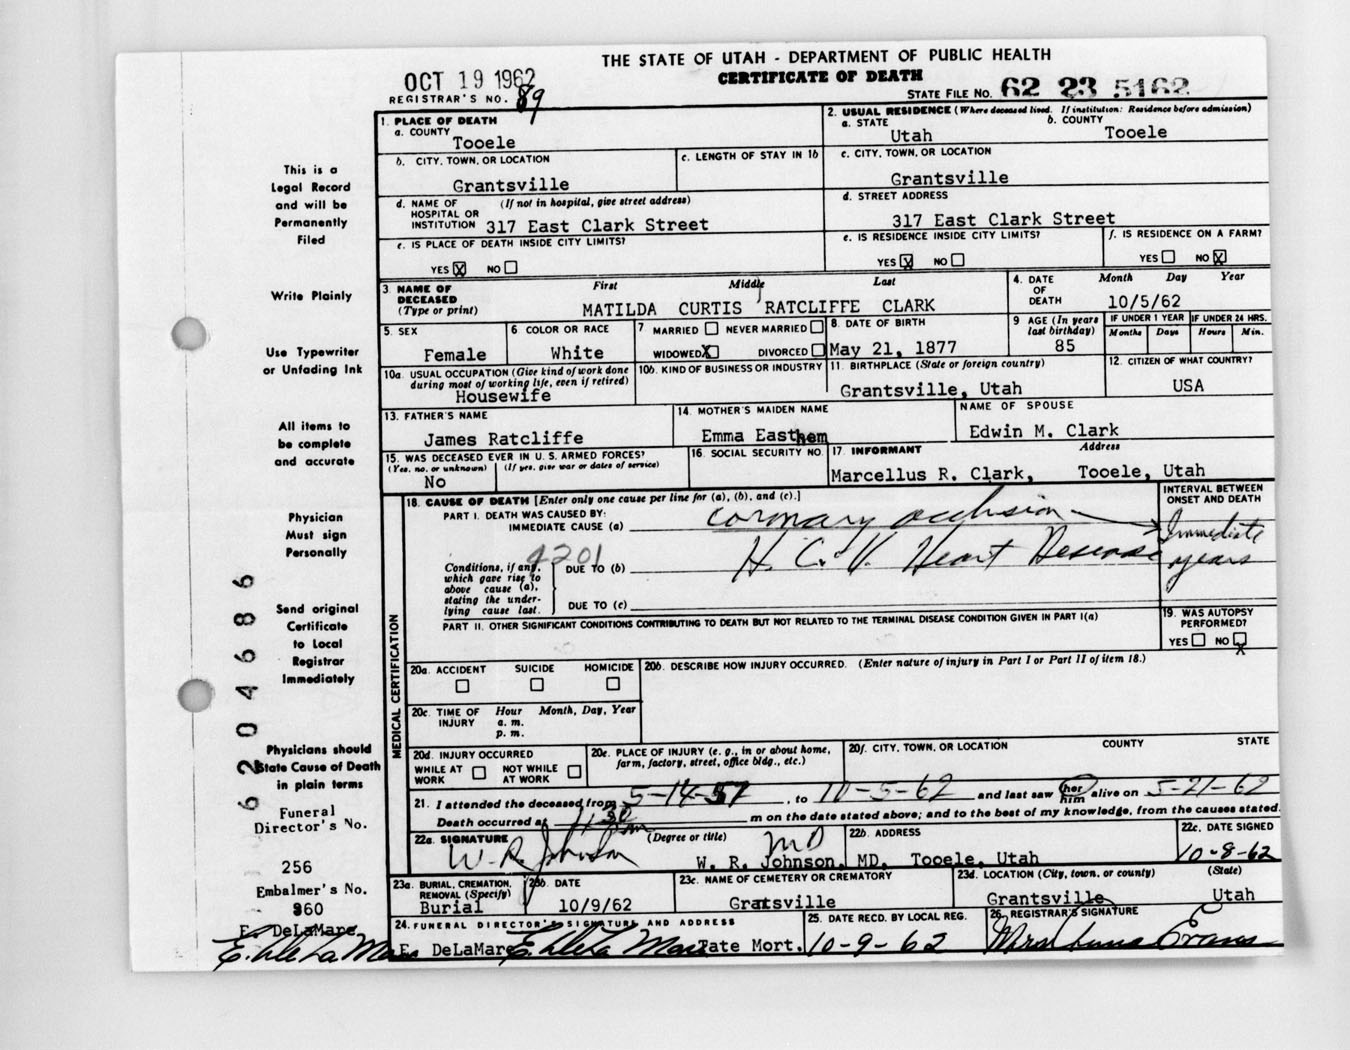 THE STATE OF UTAH - DEPARTMENT OF PUBLIC HEALTH
CERTIFICATE OF DEATH
OCT 19 1962
REGISTRAR'S NO. 89
STATE FILE NO. 62 23 5162
This is a
Legal Record
and will be
Permanently
Filed
Write Plainly
Use Typewriter
or Unfading Ink
All items to
be complete
and accurate
Physician
Must sign
Personally
Send original
Certificate
to Local
Registrar
Immediately
Physicians should
State Cause of Death
in plain terms
Funeral
Director's No.
256
Embalmer's No.
860
E. DeLaMare
6204686
1. PLACE OF DEATH
a. COUNTY
Tooele
2. USUAL RESIDENCE (Where deceased lived. If institution: Residence before admission)
a. STATE b. COUNTY
Utah Tooele
b. CITY, TOWN, OR LOCATION
Grantsville
c. LENGTH OF STAY IN 1b
c. CITY, TOWN, OR LOCATION
Grantsville
d. NAME OF HOSPITAL OR INSTITUTION (If not in hospital, give street address)
317 East Clark Street
d. STREET ADDRESS
317 East Clark Street
e. IS PLACE OF DEATH INSIDE CITY LIMITS?
YES X NO
e. IS RESIDENCE INSIDE CITY LIMITS?
YES X NO
f. IS RESIDENCE ON A FARM?
YES NO X
3. NAME OF DECEASED (Type or print)
First Middle Last
MATILDA CURTIS RATCLIFFE CLARK
4. DATE OF DEATH
Month Day Year
10/5/62
5. SEX
Female
6 COLOR OR RACE
White
7 MARRIED NEVER MARRIED
WIDOWED X DIVORCED
8. DATE OF BIRTH
May 21, 1877
9 AGE (In years last birthday)
85
IF UNDER 1 YEAR
Months Days
IF UNDER 24 HRS.
Hours Min.
10a. USUAL OCCUPATION (Give kind of work done during most of working life, even if retired)
Housewife
10b. KIND OF BUSINESS OR INDUSTRY
11. BIRTHPLACE (State or foreign country)
Grantsville, Utah
12. CITIZEN OF WHAT COUNTRY?
USA
13. FATHER'S NAME
James Ratcliffe
14. MOTHER'S MAIDEN NAME
Emma Easthem
NAME OF SPOUSE
Edwin M. Clark
15. WAS DECEASED EVER IN U.S. ARMED FORCES?
(Yes, no, or unknown) (If yes, give war or dates of service)
No
16. SOCIAL SECURITY NO.
17 INFORMANT Address
Marcellus R. Clark, Tooele, Utah
MEDICAL CERTIFICATION
18. CAUSE OF DEATH [Enter only one cause per line for (a), (b), and (c).]
INTERVAL BETWEEN ONSET AND DEATH
PART I. DEATH WAS CAUSED BY:
IMMEDIATE CAUSE (a) coronary occlusion Immediate
4201
Conditions, if any, which gave rise to above cause (a), stating the underlying cause last.
DUE TO (b) H. C. V. Heart Desease years
DUE TO (c)
PART II. OTHER SIGNIFICANT CONDITIONS CONTRIBUTING TO DEATH BUT NOT RELATED TO THE TERMINAL DISEASE CONDITION GIVEN IN PART I(a)
19. WAS AUTOPSY PERFORMED?
YES NO X
20a. ACCIDENT SUICIDE HOMICIDE
20b. DESCRIBE HOW INJURY OCCURRED. (Enter nature of injury in Part I or Part II of item 18.)
20c. TIME OF INJURY Hour Month, Day, Year
a. m.
p. m.
20d. INJURY OCCURRED
WHILE AT WORK NOT WHILE AT WORK
20e. PLACE OF INJURY (e. g., in or about home, farm, factory, street, office bldg., etc.)
20f. CITY, TOWN, OR LOCATION COUNTY STATE
21. I attended the deceased from 5-14-57, to 10-5-62 and last saw her him alive on 5-21-62
Death occurred at 1130 m on the date stated above; and to the best of my knowledge, from the causes stated.
22a. SIGNATURE (Degree or title)
W. R. Johnson MD
W. R. Johnson, MD,
22b. ADDRESS
Tooele, Utah
22c. DATE SIGNED
10-8-62
23a. BURIAL, CREMATION, REMOVAL (Specify)
Burial
23b. DATE
10/9/62
23c. NAME OF CEMETERY OR CREMATORY
Grantsville
23d. LOCATION (City, town, or county) (State)
Grantsville Utah
24. FUNERAL DIRECTOR'S SIGNATURE AND ADDRESS
E. DeLaMare Tate Mort.
25. DATE RECD. BY LOCAL REG.
10-9-62
26. REGISTRAR'S SIGNATURE
Evans